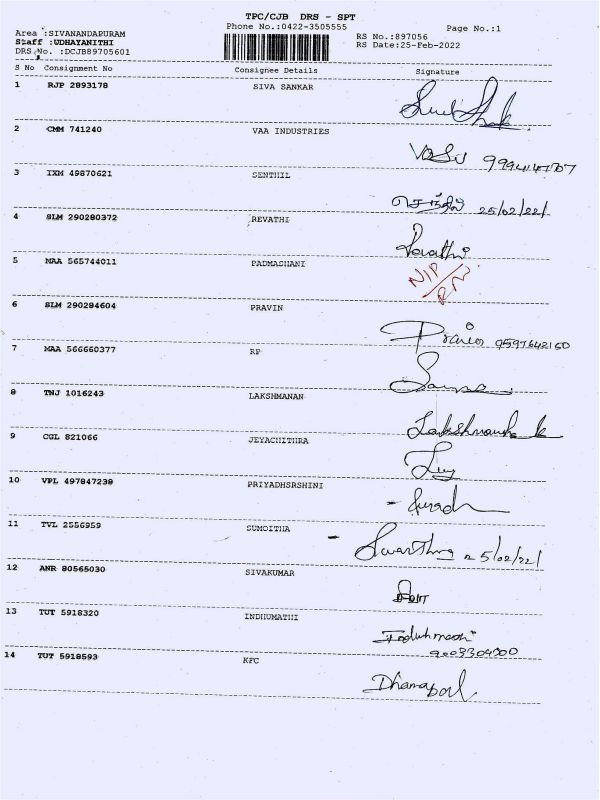 TPC/CJB DRS - SPT
Phone No.:0422-3505555
Page No.:1
Area :SIVANANDAPURAM
Staff :UDHAYANITHI
DRS No. :DCJB89705601
RS No.:897056
RS Date:25-Feb-2022
S No Consignment No Consignee Details Signature
1 RJP 2893178 SIVA SANKAR
2 CMM 741240 VAA INDUSTRIES
Vasu
3 IXM 49870621 SENTHIL
செந்தில் 25/02/22/
4 SLM 290280372 REVATHI
Revathi
5 MAA 565744011 PADMASHANI
N/P
6 SLM 290294604 PRAVIN
Pravin 9597642160
7 MAA 566660377 RP
8 TNJ 1016243 LAKSHMANAN
9 CGL 821066 JEYACHITHRA
10 VPL 497847238 PRIYADHSRSHINI
11 TVL 2556959 SUMOITHA
25/02/22/
12 ANR 80565030 SIVAKUMAR
13 TUT 5918320 INDHUMATHI
14 TUT 5918593 KFC
Dhanapal